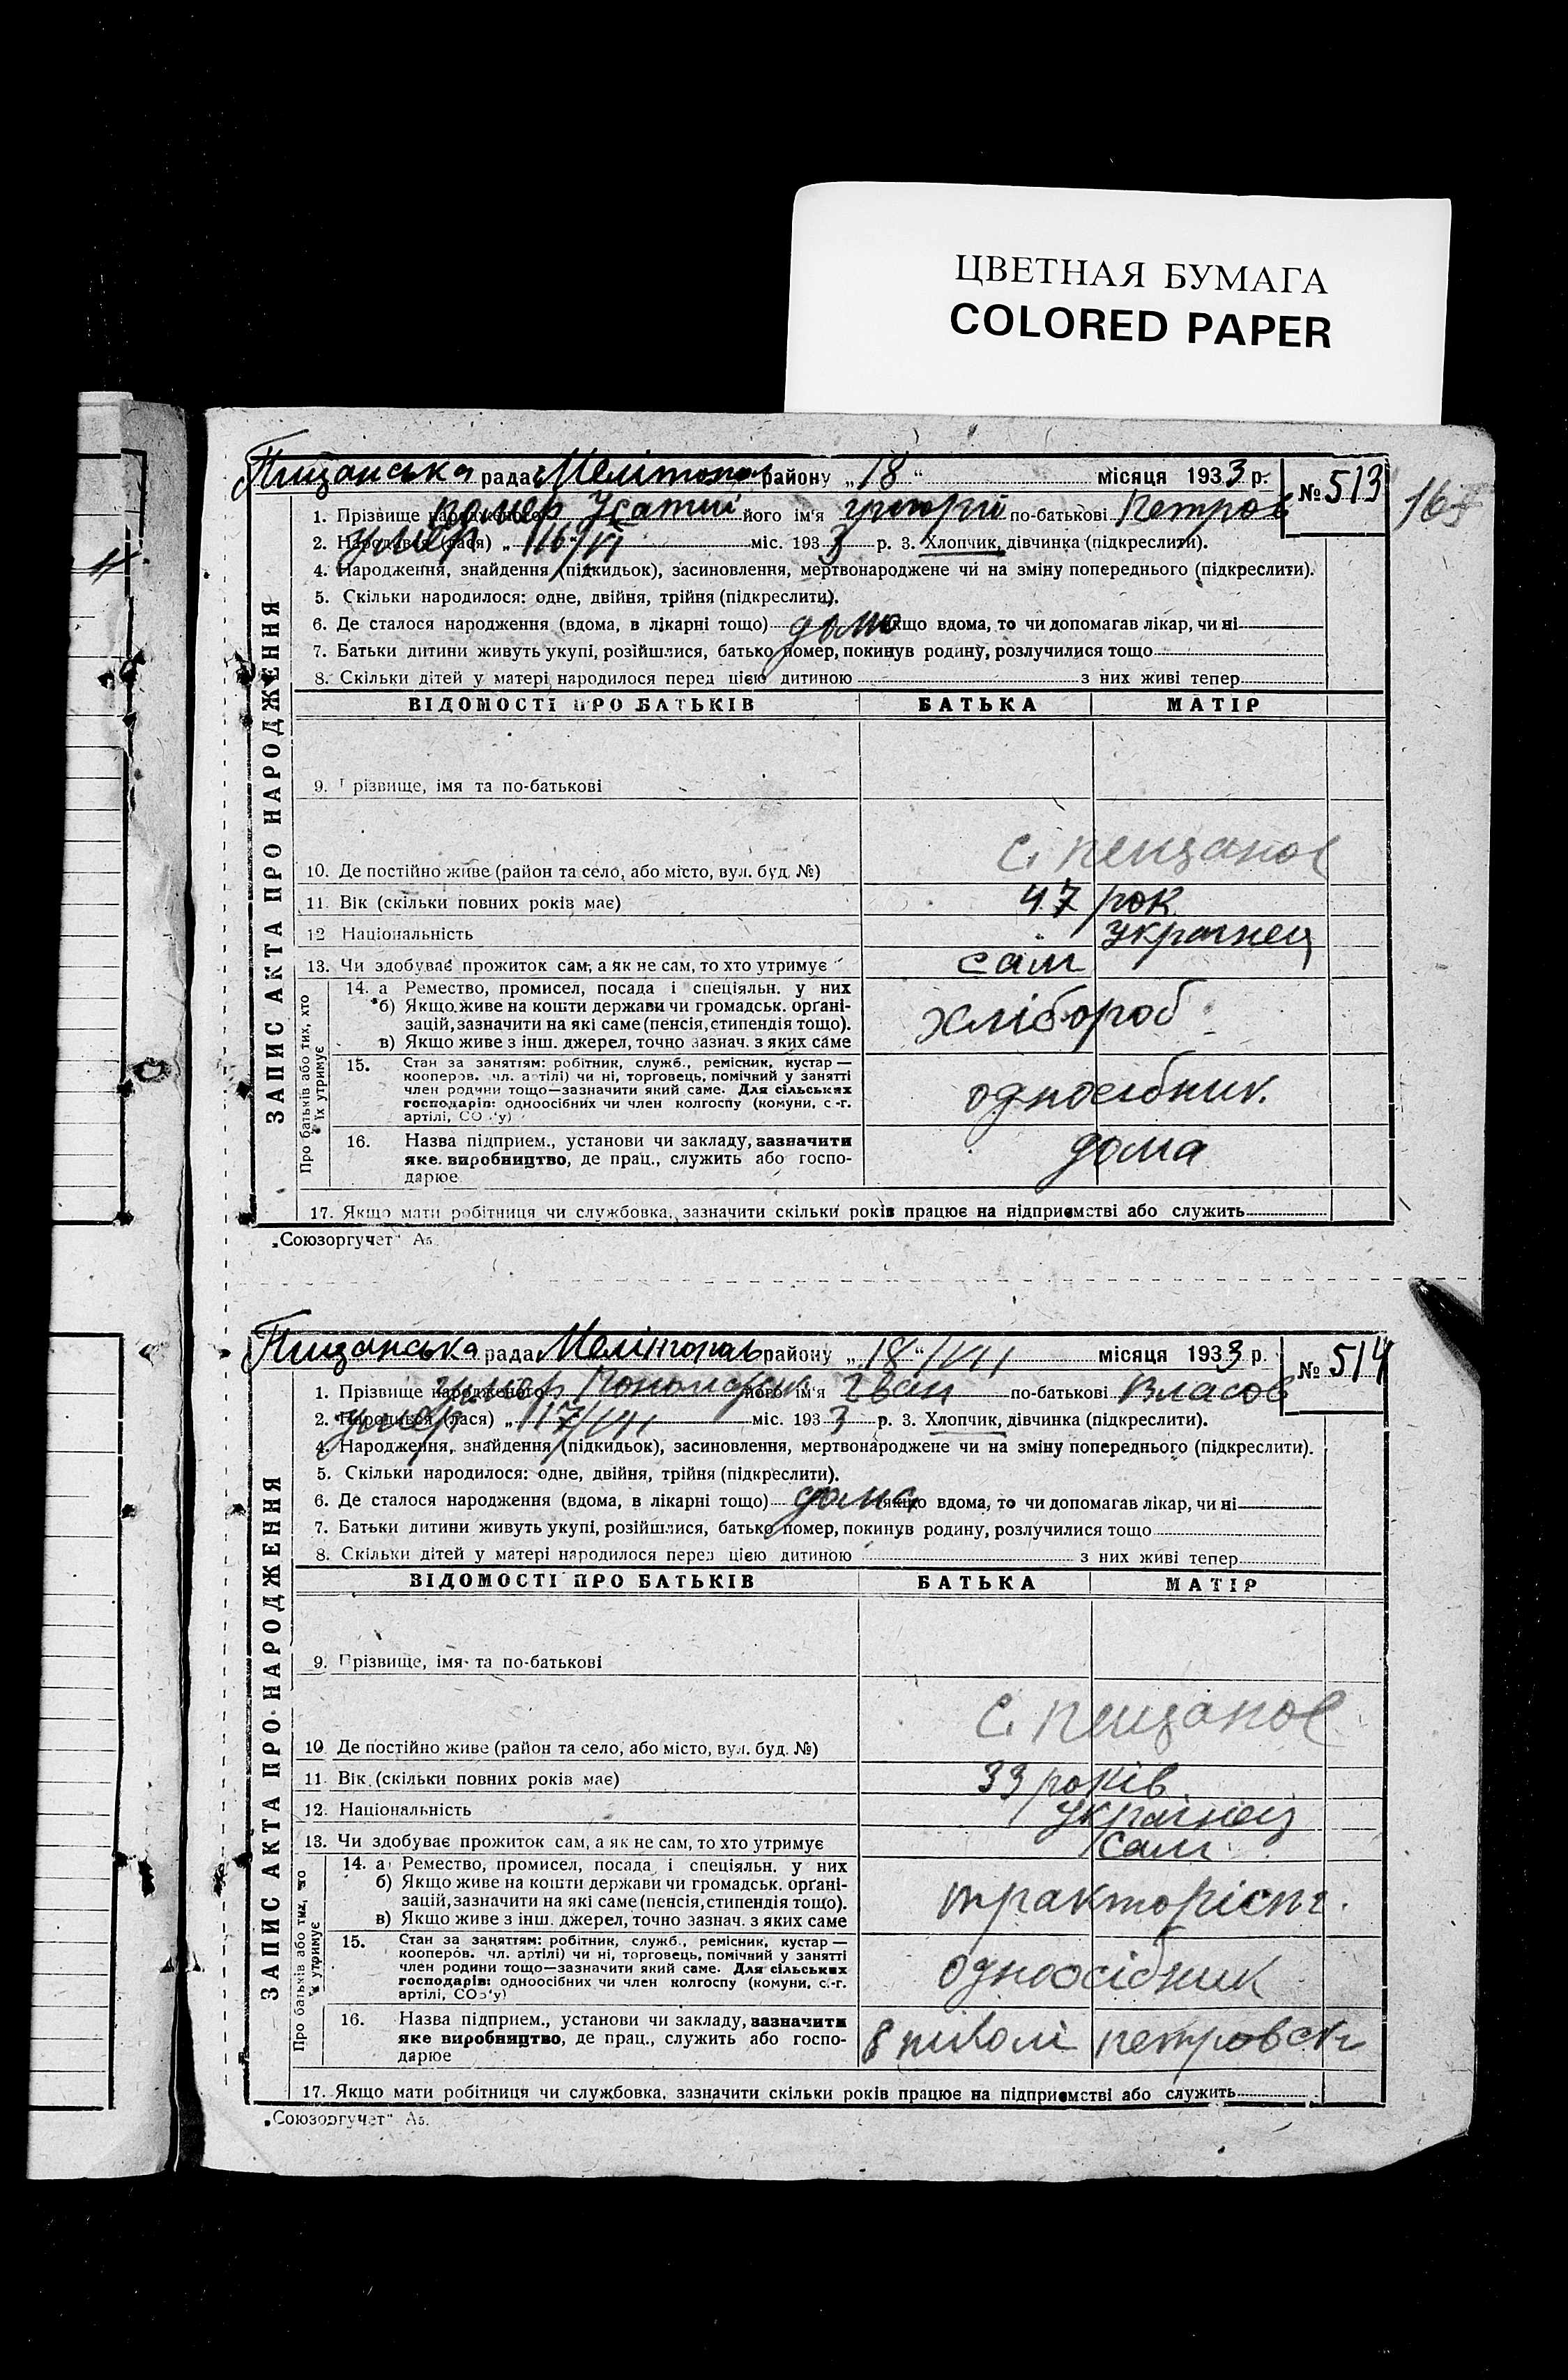 ЦВЕТНАЯ БУМАГА
COLORED PAPER
165
Пищанська рада Мелітопол району „18“ місяця 1933 р. № 513
1. Прізвище народженого помер Усатий його ім'я григорій по-батькові Петров
2. Народився (лася) умер „16“/VI міс. 1933 р. 3. Хлопчик, дівчинка (підкреслити).
4. Народження, знайдення (підкидьок), засиновлення, мертвонароджене чи на зміну попереднього (підкреслити).
5. Скільки народилося: одне, двійня, трійня (підкреслити).
6. Де сталося народження (вдома, в лікарні тощо) дома якщо вдома, то чи допомагав лікар, чи ні
7. Батьки дитини живуть укупі, розійшлися, батько помер, покинув родину, розлучилися тощо
8. Скільки дітей у матері народилося перед цією дитиною з них живі тепер
ЗАПИС АКТА ПРО НАРОДЖЕННЯ
ВІДОМОСТІ ПРО БАТЬКІВ БАТЬКА МАТІР
9. Прізвище, імя та по-батькові
10. Де постійно живе (район та село, або місто, вул. буд. №) с. пещаное
11. Вік (скільки повних років має) 47 рок
12 Національність українец
13. Чи здобуває прожиток сам, а як не сам, то хто утримує сам
Про батьків або тих, хто їх утримує
14. а Ремество, промисел, посада і спеціяльн. у них
б) Якщо живе на кошти держави чи громадськ. орґані-
зацій, зазначити на які саме (пенсія, стипендія тощо). хлібороб
в) Якщо живе з інш. джерел, точно зазнач. з яких саме
15. Стан за заняттям: робітник, служб., ремісник, кустар —
кооперов. чл. артілі) чи ні, торговець, помічний у занятті
член родини тощо—зазначити який саме. Для сільських
господарів: одноосібних чи член колгоспу (комуни, с.-г. одноосібник.
артілі, СОЗ'у)
16. Назва підприєм., установи чи закладу, зазначити дома
яке виробництво, де прац., служить або госпо-
дарює
17. Якщо мати робітниця чи службовка, зазначити скільки років працює на підприємстві або служить
„Союзоргучет“ А5
Пищанська рада Мелітополь району „18“/VII місяця 1933 р. № 514
1. Прізвище народженого умер його ім'я Іван по-батькові Власов
2. Народився (лася) умер „17“/VII міс. 1933 р. 3. Хлопчик, дівчинка (підкреслити).
4. Народження, знайдення (підкидьок), засиновлення, мертвонароджене чи на зміну попереднього (підкреслити).
5. Скільки народилося: одне, двійня, трійня (підкреслити).
6. Де сталося народження (вдома, в лікарні тощо) дома якщо вдома, то чи допомагав лікар, чи ні
7. Батьки дитини живуть укупі, розійшлися, батько помер, покинув родину, розлучилися тощо
8. Скільки дітей у матері народилося перед цією дитиною з них живі тепер
ЗАПИС АКТА ПРО НАРОДЖЕННЯ
ВІДОМОСТІ ПРО БАТЬКІВ БАТЬКА МАТІР
9. Прізвище, імя та по-батькові
10 Де постійно живе (район та село, або місто, вул. буд. №) с. пищаное
11 Вік (скільки повних років має) 33 років
12. Національність українец
13. Чи здобуває прожиток сам, а як не сам, то хто утримує сам
Про батьків або тих, що їх утримує
14. а Ремество, промисел, посада і спеціяльн. у них
б) Якщо живе на кошти держави чи громадськ. орґані-
зацій, зазначити на які саме (пенсія, стипендія тощо). тракторіст.
в) Якщо живе з інш. джерел, точно зазнач. з яких саме
15. Стан за заняттям: робітник, служб., ремісник, кустар —
кооперов. чл. артілі) чи ні, торговець, помічний у занятті
член родини тощо—зазначити який саме. Для сільських
господарів: одноосібних чи член колгоспу (комуни, с.-г. одноосібник
артілі, СОЗ'у)
16. Назва підприєм., установи чи закладу, зазначити
яке виробництво, де прац., служить або госпо-
дарює
17. Якщо мати робітниця чи службовка, зазначити скільки років працює на підприємстві або служить
„Союзоргучет“ А5.